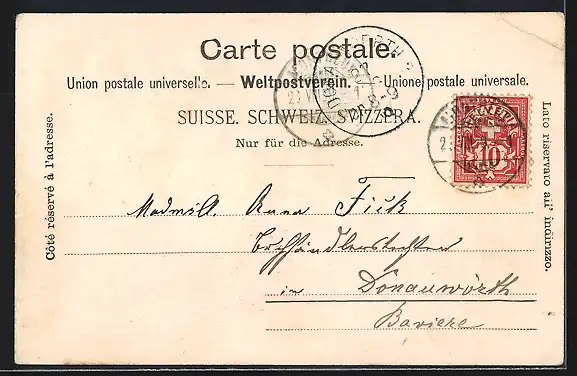 Carte postale.
Union postale universelle. — Weltpostverein. — Unione postale universale.
SUISSE. SCHWEIZ. SVIZZERA.
Nur für die Adresse.
Côté réservé à l'adresse.
Lato riservato all' indirizzo.
HELVETIA
10
Madmll. Anna Fick
Buchhändlerstochter
in Donauwörth
Baviere